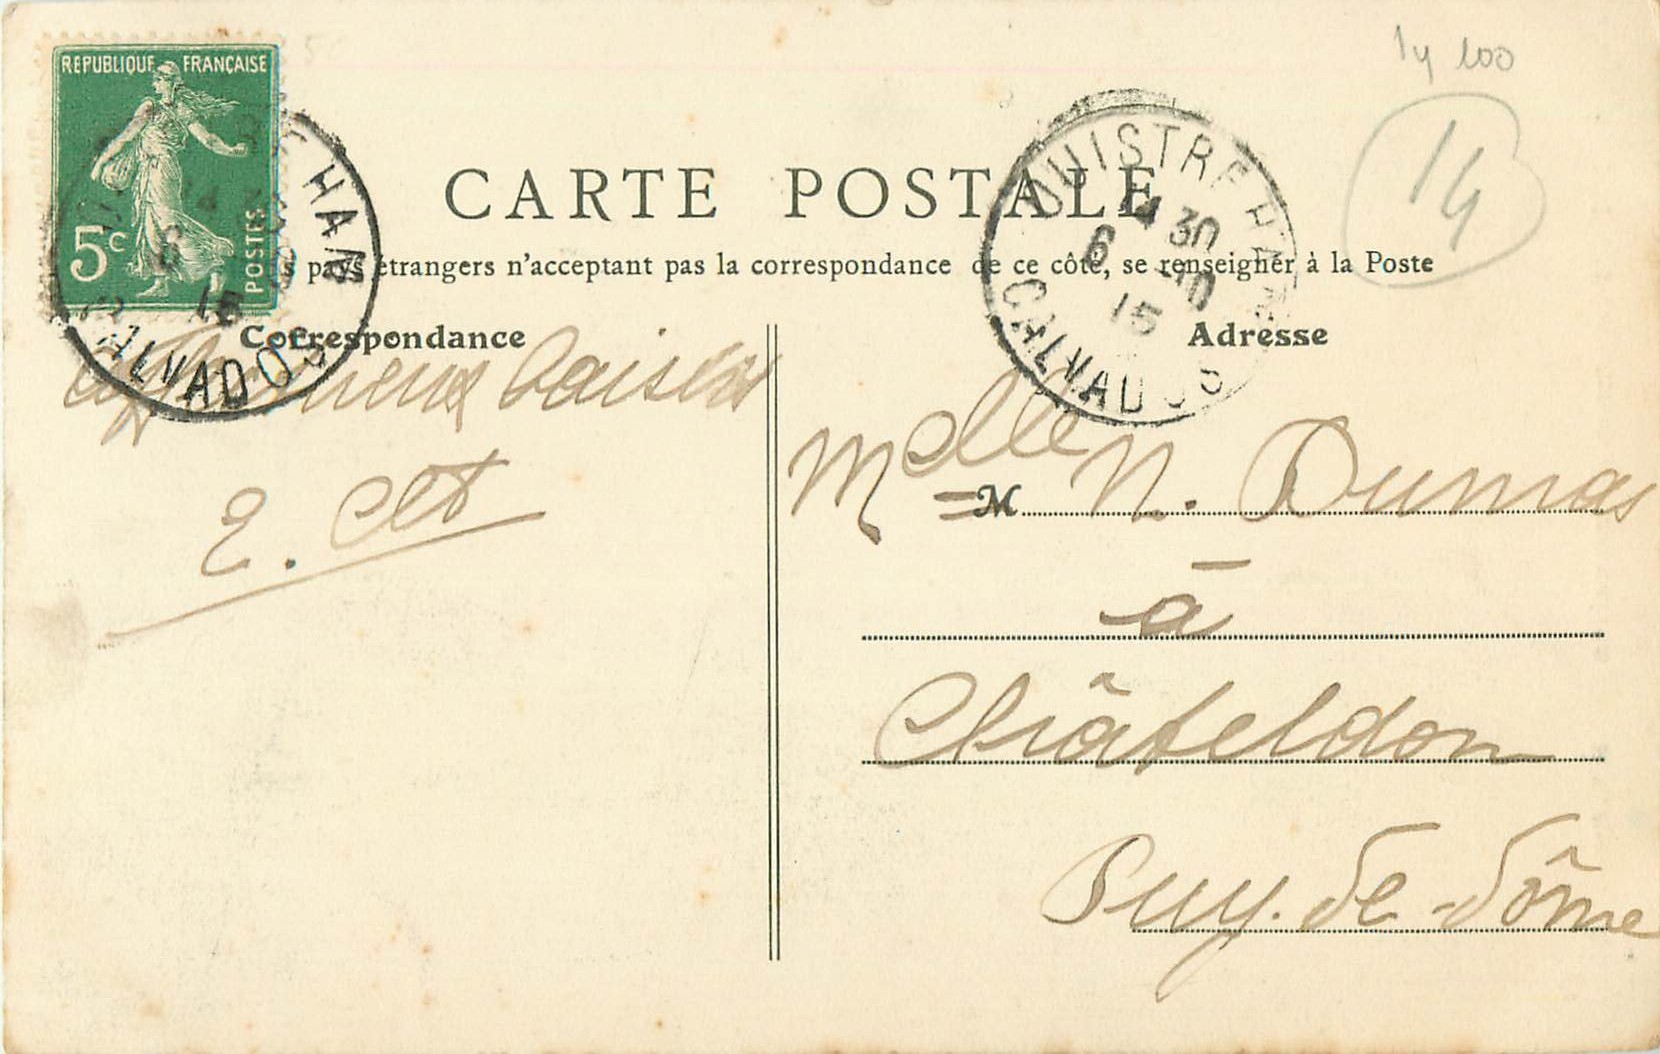 REPUBLIQUE FRANÇAISE
5c POSTES
1y 100
14
CARTE POSTALE
OUISTREHAM
14 30
6 -10
15
CALVADOS
HAM
15
CALVADOS
pays étrangers n'acceptant pas la correspondance de ce côté, se renseigner à la Poste
Correspondance
Adresse
affectueux baisers
Melle M N. Dumas
à
Châteldon
Puy-de-Dôme